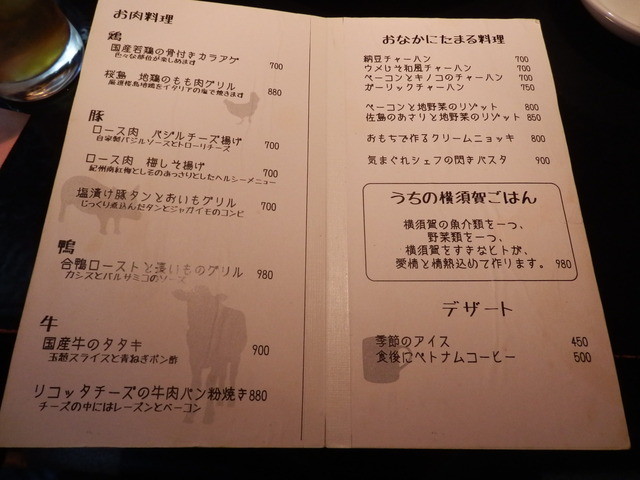 お肉料理
鶏
国産若鶏の骨付きカラアゲ 700
色々な部位が楽しめます
桜島 地鶏のもも肉グリル 880
厳選桜島地鶏をイタリアの塩で焼きます
豚
ロース肉 バジルチーズ揚げ 700
自家製バジルソースとトローリチーズ
ロース肉 梅しそ揚げ 700
紀州南紅梅としそのあっさりとしたヘルシーメニュー
塩漬け豚タンとおいもグリル 700
じっくり煮込んだタンとジャガイモのコンビ
鴨
合鴨ローストと濃いものグリル 980
カシスとバルサミコのソース
牛
国産牛のタタキ 900
玉葱スライスと青ねぎポン酢
リコッタチーズの牛肉パン粉焼き 880
チーズの中にはレーズンとベーコン
おなかにたまる料理
納豆チャーハン 700
ウメしそ和風チャーハン 700
ベーコンとキノコのチャーハン 700
ガーリックチャーハン 750
ベーコンと地野菜のリゾット 800
佐島のあさりと地野菜のリゾット 850
おもちで作るクリームニョッキ 800
気まぐれシェフの閃きパスタ 900
うちの横須賀ごはん
横須賀の魚介類を一つ、
野菜類を一つ、
横須賀をすきなヒトが、
愛情と情熱込めて作ります。 980
デザート
季節のアイス 450
食後にベトナムコーヒー 500